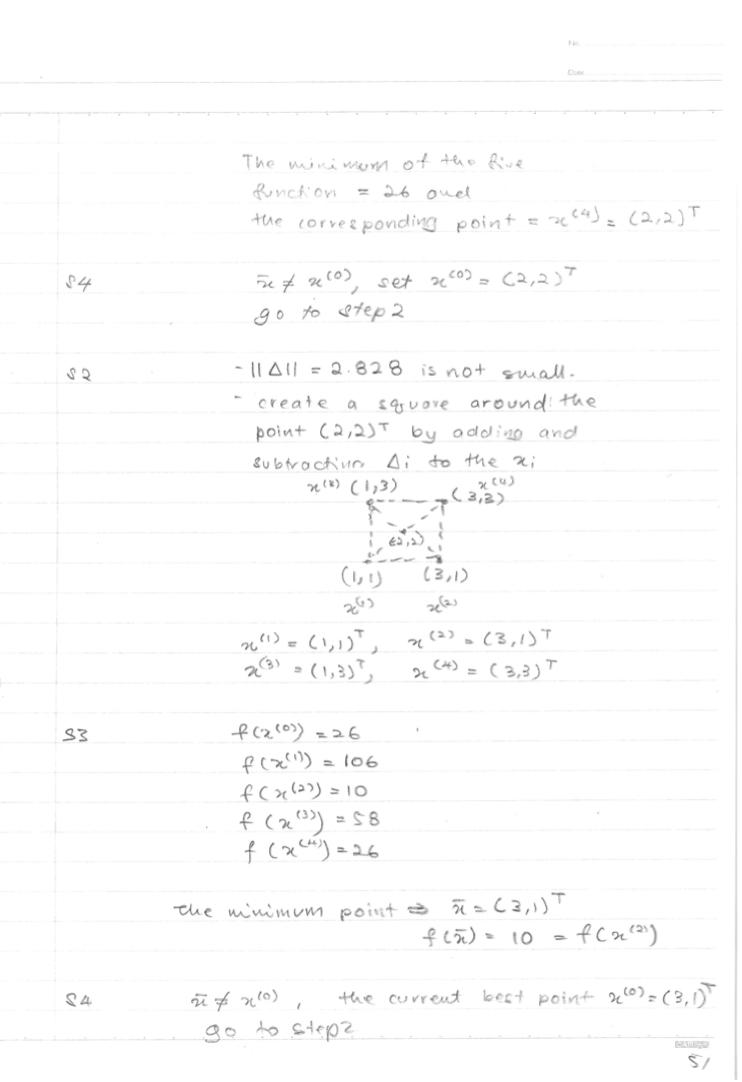 No.
Date
The minimum of the five
function = 26 and
the corresponding point = x^(4) = (2,2)^T
S4 x̄ ≠ x^(0), set x^(0) = (2,2)^T
go to step 2
S2 - ||Δ|| = 2.828 is not small.
- create a square around the
point (2,2)^T by adding and
subtracting Δi to the xi
x^(3) (1,3) x^(4) (3,3)
(2,2)
(1,1) (3,1)
x^(1) x^(2)
x^(1) = (1,1)^T, x^(2) = (3,1)^T
x^(3) = (1,3)^T, x^(4) = (3,3)^T
S3 f(x^(0)) = 26
f(x^(1)) = 106
f(x^(2)) = 10
f(x^(3)) = 58
f(x^(4)) = 26
the minimum point ⇒ x̄ = (3,1)^T
f(x̄) = 10 = f(x^(2))
S4 x̄ ≠ x^(0), the current best point x^(0) = (3,1)^T
go to step2
51